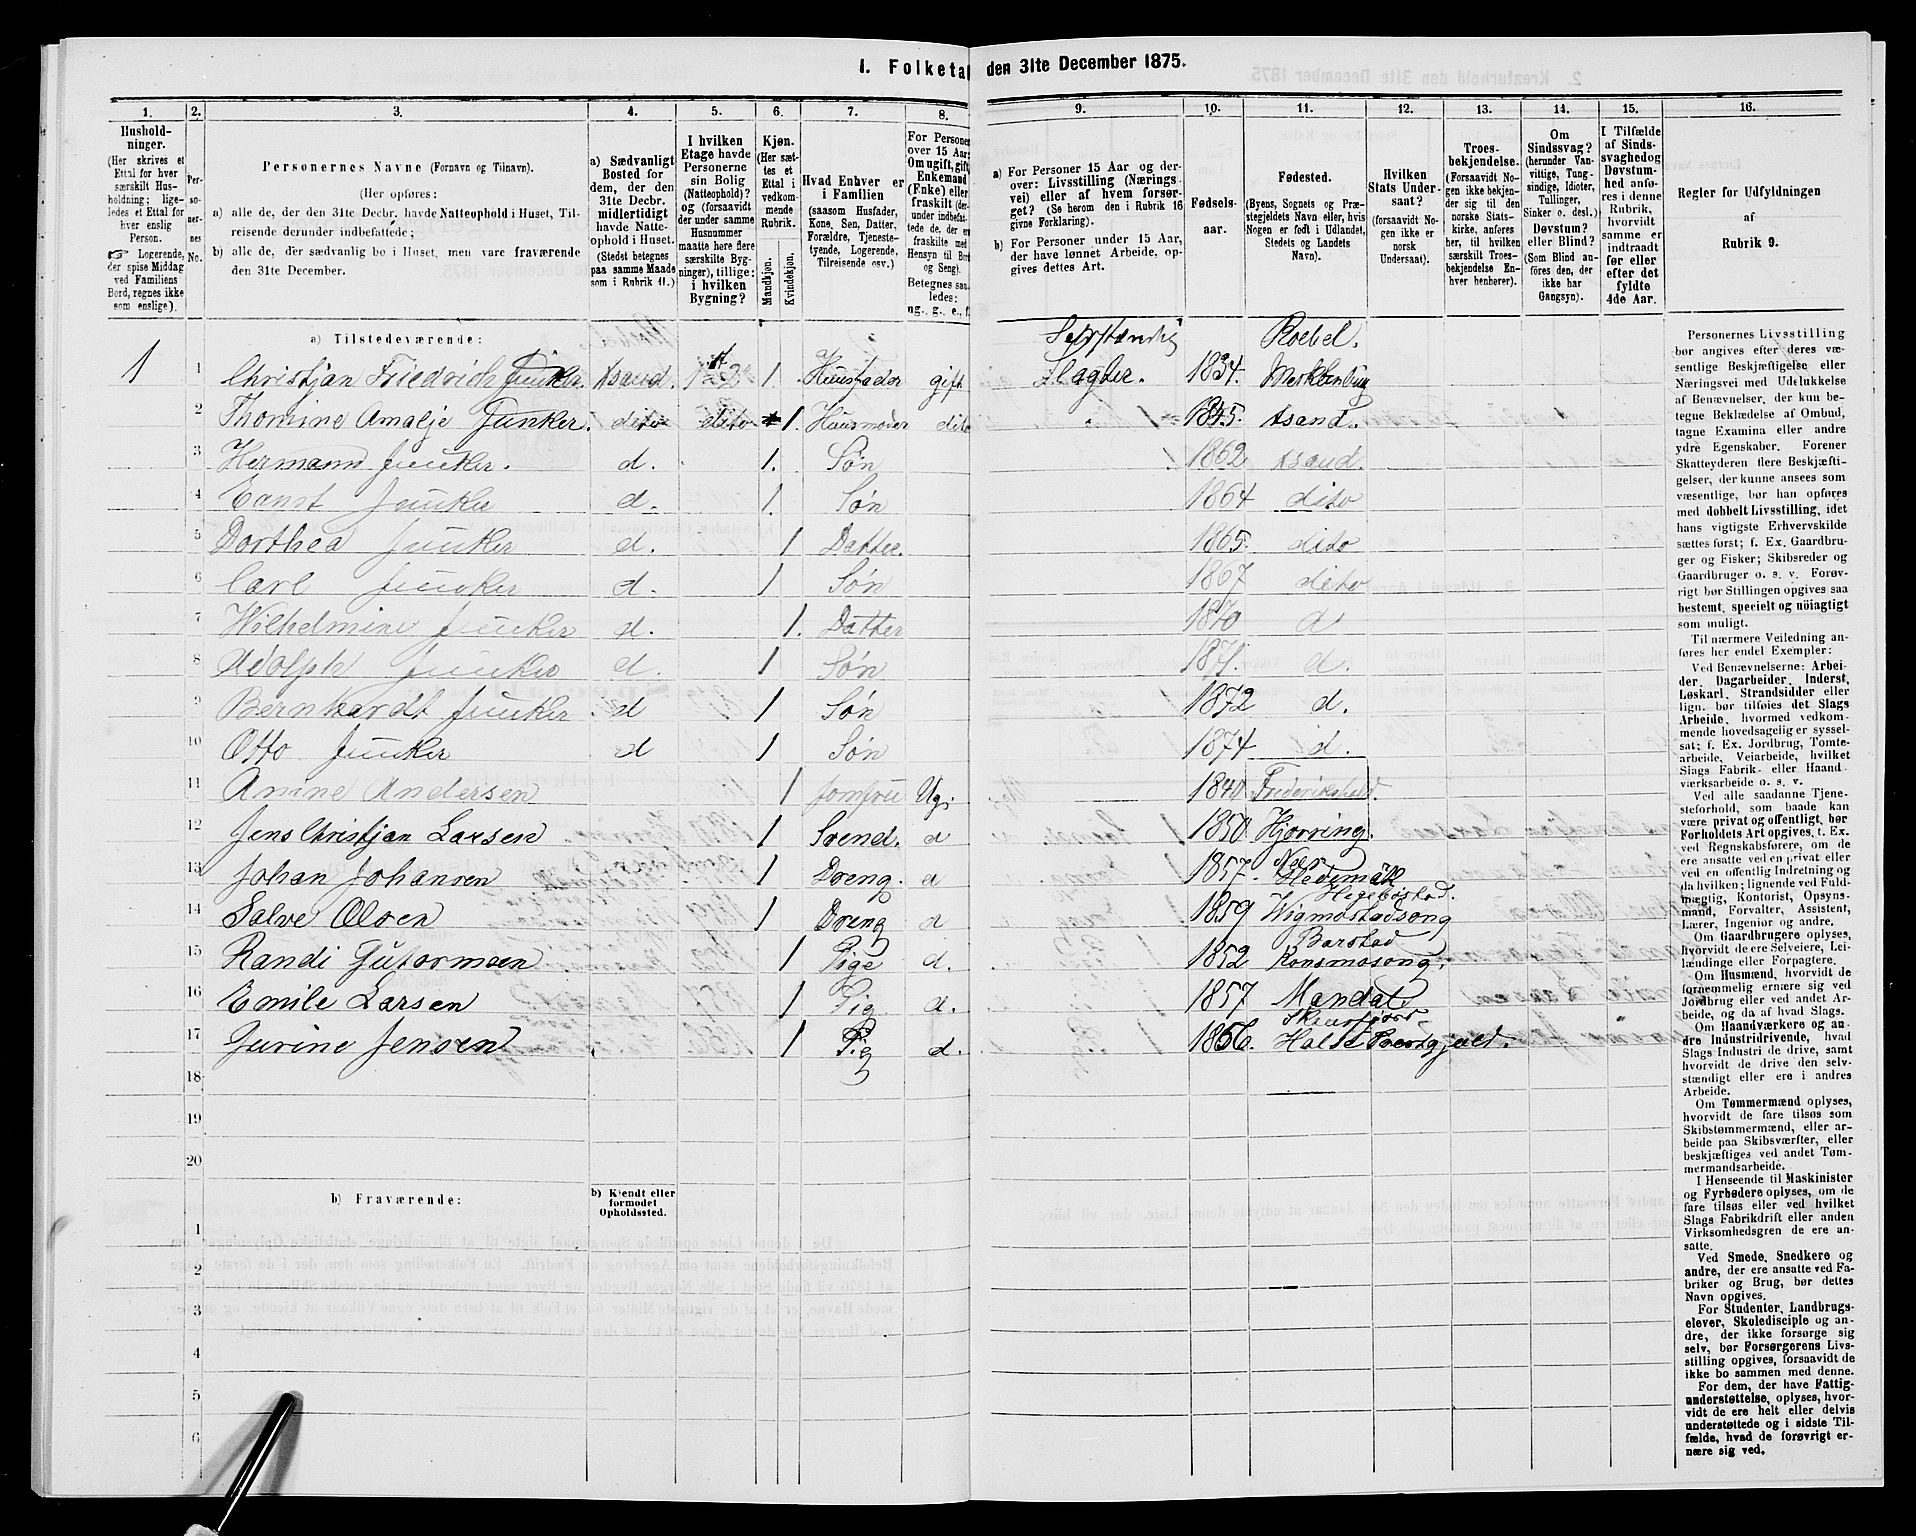 I. Folketal den 31te December 1875.
1. 2. 3. 4. 5. 6. 7. 8. 9. 10. 11. 12. 13. 14. 15. 16.
Hushold-
ninger.
(Her skrives et
Ettal for hver
særskilt Hus-
holdning; lige-
ledes et Ettal for
hver enslig
Person.
Logerende,
der spise Middag
ved Familiens
Bord, regnes ikke
som enslige).
Per-
so-
ner-
nes
No.
Personernes Navne (Fornavn og Tilnavn).
(Her opføres:
a) alle de, der den 31te Decbr. havde Natteophold i Huset, Til-
reisende derunder indbefattede;
b) alle de, der sædvanlig bo i Huset, men vare fraværende
den 31te December.
a) Sædvanligt
Bosted for
dem, der den
31te Decbr.
midlertidigt
havde Natte-
ophold i Huset.
(Stedet betegnes
paa samme Maade
som i Rubrik 11.)
I hvilken
Etage havde
Personerne
sin Bolig
(Natteophold)?
og (forsaavidt
der under samme
Husnummer
maatte høre flere
særskilte Byg-
ninger), tillige:
i hvilken
Bygning?
Kjøn.
(Her sæt-
tes et
Ettal i
vedkom-
mende
Rubrik.
Mandkjøn.
Kvindekjøn.
Hvad Enhver er
i Familien
(saasom Husfader,
Kone, Søn, Datter,
Forældre, Tjeneste-
tyende, Logerende,
Tilreisende osv.)
For Personer
over 15 Aar:
Om ugift, gift,
Enkemand
(Enke) eller
fraskilt (der-
under indbefat-
tede de, der ere
fraskilte med
Hensyn til Bord
og Seng).
Betegnes saa-
ledes:
ug., g., e., f.
a) For Personer 15 Aar og der-
over: Livsstilling (Nærings-
vei) eller af hvem forsør-
get? (Se herom den i Rubrik 16
givne Forklaring).
b) For Personer under 15 Aar,
der have lønnet Arbeide, op-
gives dettes Art.
Fødsels-
aar.
Fødested.
(Byens, Sognets og Præ-
stegjeldets Navn eller, hvis
Nogen er født i Udlandet,
Stedets og Landets
Navn).
Hvilken
Stats Under-
saat?
(forsaavidt No-
gen ikke er
norsk
Undersaat).
Troes-
bekjendelse.
(Forsaavidt No-
gen ikke bekjen-
der sig til den
norske Stats-
kirke, anføres
her, til hvilken
særskilt Troes-
bekjendelse En-
hver henhører).
Om
Sindssvag?
(herunder Van-
vittige, Tung-
sindige, Idioter,
Tullinger,
Sinker o. desl.)
Døvstum?
eller Blind?
(Som Blind an-
føres den, der
ikke har
Gangsyn).
I Tilfælde
af Sinds-
svaghed og
Døvstum-
hed anfø-
res i denne
Rubrik,
hvorvidt
samme er
indtraadt
før eller
efter det
fyldte
4de Aar.
Regler for Udfyldningen
af
Rubrik 9.
a) Tilstedeværende: Selvstændig Roebel.
1 1 Christjan Friedrich Junker. Asand. 1 & 2 1. Huusfader gift Slagter. 1834. Meklenburg
2 Thomine Amalje Junker. dito dito 1. Huusmoder dito 1845. Asand.
3 Hermann Junker. d. 1. Søn 1862 Asand.
4 Ernst Junker d. 1. Søn 1864 dito
5 Dorthea Junker d. 1 Datter. 1865. dito
6 Carl Junker d. 1 Søn 1867 dito
7 Wilhelmine Junker d. 1. Datter 1870 d
8 Adolph Junker d. 1 Søn 1871. d.
9 Bernhardt Junker. d 1 Søn 1872 d.
10 Otto Junker d 1 Søn 1874 d.
11 Anine Andersen 1 Jomfru Ug. 1840 Frederikshald.
12 Jens Christjan Larsen 1 Svend. d 1850. Hjørring.
13 Johan Johansen 1 Dreng. d 1857. Hedemark
Hegebostad.
14 Salve Olsen 1 Dreng d 1859 Wigmostadsong
Barstad
15 Randi Gutormsen 1 Pige d. 1852 Konsmosong.
16 Emile Larsen 1 Pig d. 1857 Mandal.
17 Jurine Jensen 1 Pig d. 1856. Halse Prestgjeld.
18
19
20
b) Fraværende: b) Kjendt eller
formodet
Opholdssted.
1
2
3
4
5
6
Personernes Livsstilling
bør angives efter deres væ-
sentlige Beskjæftigelse eller
Næringsvei med Udelukkelse
af Benævnelser, der kun be-
tegne Beklædelse af Ombud,
tagne Examina eller andre
ydre Egenskaber. Forener
Skatteyderen flere Beskjæfti-
gelser, der kunne ansees som
væsentlige, bør han opføres
med dobbelt Livsstilling, idet
hans vigtigste Erhvervskilde
sættes først; f. Ex. Gaardbru-
ger og Fisker; Skibsreder og
Gaardbruger o. s. v. Forøv-
rigt bør Stillingen opgives saa
bestemt, specielt og nöiagtigt
som muligt.
Til nærmere Veiledning an-
føres her endel Exempler:
Ved Benævnelserne: Arbei-
der, Dagarbeider, Inderst,
Løskarl, Strandsidder eller
lign. bør tilføies det Slags
Arbeide, hvormed vedkom-
mende hovedsagelig er syssel-
sat; f. Ex. Jordbrug, Tomte-
arbeide, Veiarbeide, hvilket
Slags Fabrik- eller Haand-
værksarbeide o. s. v.
Ved alle saadanne Tjene-
steforhold, som baade kan
være privat og offentligt, bør
Forholdets Art opgives, t. Ex.
ved Regnskabsførere, om de
ere ansatte ved en privat eller
ved en offentlig Indretning og
da hvilken; lignende ved Fuld-
mægtig, Kontorist, Opsyns-
mand, Forvalter, Assistent,
Lærer, Ingeniør og andre.
Om Gaardbrugere oplyses,
hvorvidt de ere Selveiere, Lei-
lændinge eller Forpagtere.
Om Husmænd, hvorvidt de
fornemmelig ernære sig ved
Jordbrug eller ved andet Ar-
beide, og da af hvad Slags.
Om Haandværkere og an-
dre Industridrivende, hvad
Slags Industri de drive, samt
hvorvidt de drive den selv-
stændigt eller ere i andres
Arbeide.
Om Tømmermænd oplyses,
hvorvidt de fare tilsøs som
Skibstømmermænd, eller ar-
beide paa Skibsværfter, eller
beskjæftiges ved andet Tøm-
mermandsarbeide.
I Henseende til Maskinister
og Fyrbødere oplyses, om de
fare tilsøs eller ved hvilket
Slags Fabrikdrift eller anden
Virksomhedsgren de ere an-
satte.
Ved Smede, Snedkere og
andre, der ere ansatte ved Fa-
briker og Brug, bør dettes
Navn opgives.
For Studenter, Landbrugs-
elever, Skoledisciple og an-
dre, der ikke forsørge sig
selv, bør Forsørgerens Livs-
stilling opgives, forsaavidt de
ikke bo sammen med denne.
For dem, der have Fattig-
understøttelse, oplyses, hvor-
vidt de ere helt eller delvis
understøttede og i sidste Til-
fælde, hvad de forøvrigt er-
nære sig ved.